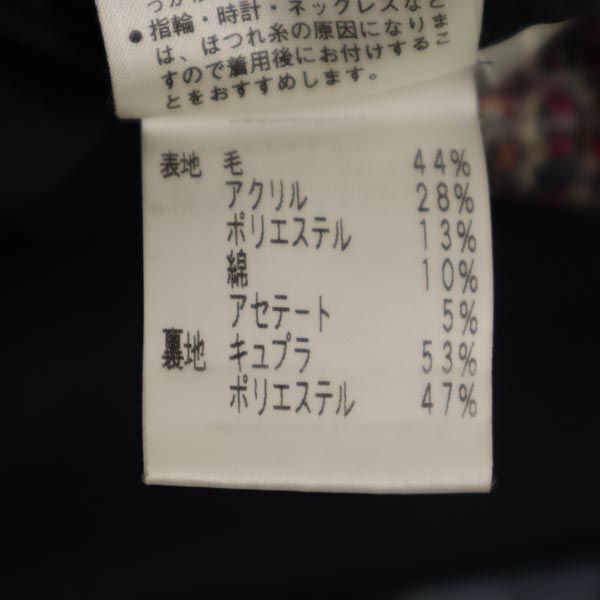 ● 指輪・時計・ネックレスなど
は、ほつれ糸の原因になりま
すので着用後にお付けするこ
とをおすすめします。
表地 毛 44%
アクリル 28%
ポリエステル 13%
綿 10%
アセテート 5%
裏地 キュプラ 53%
ポリエステル 47%